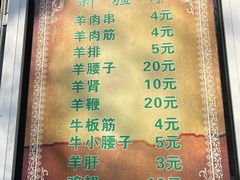 羊肉串 4元
羊肉筋 4元
羊排 5元
羊腰子 20元
羊肾 10元
羊鞭 20元
牛板筋 4元
牛小腰子 5元
羊肝 3元